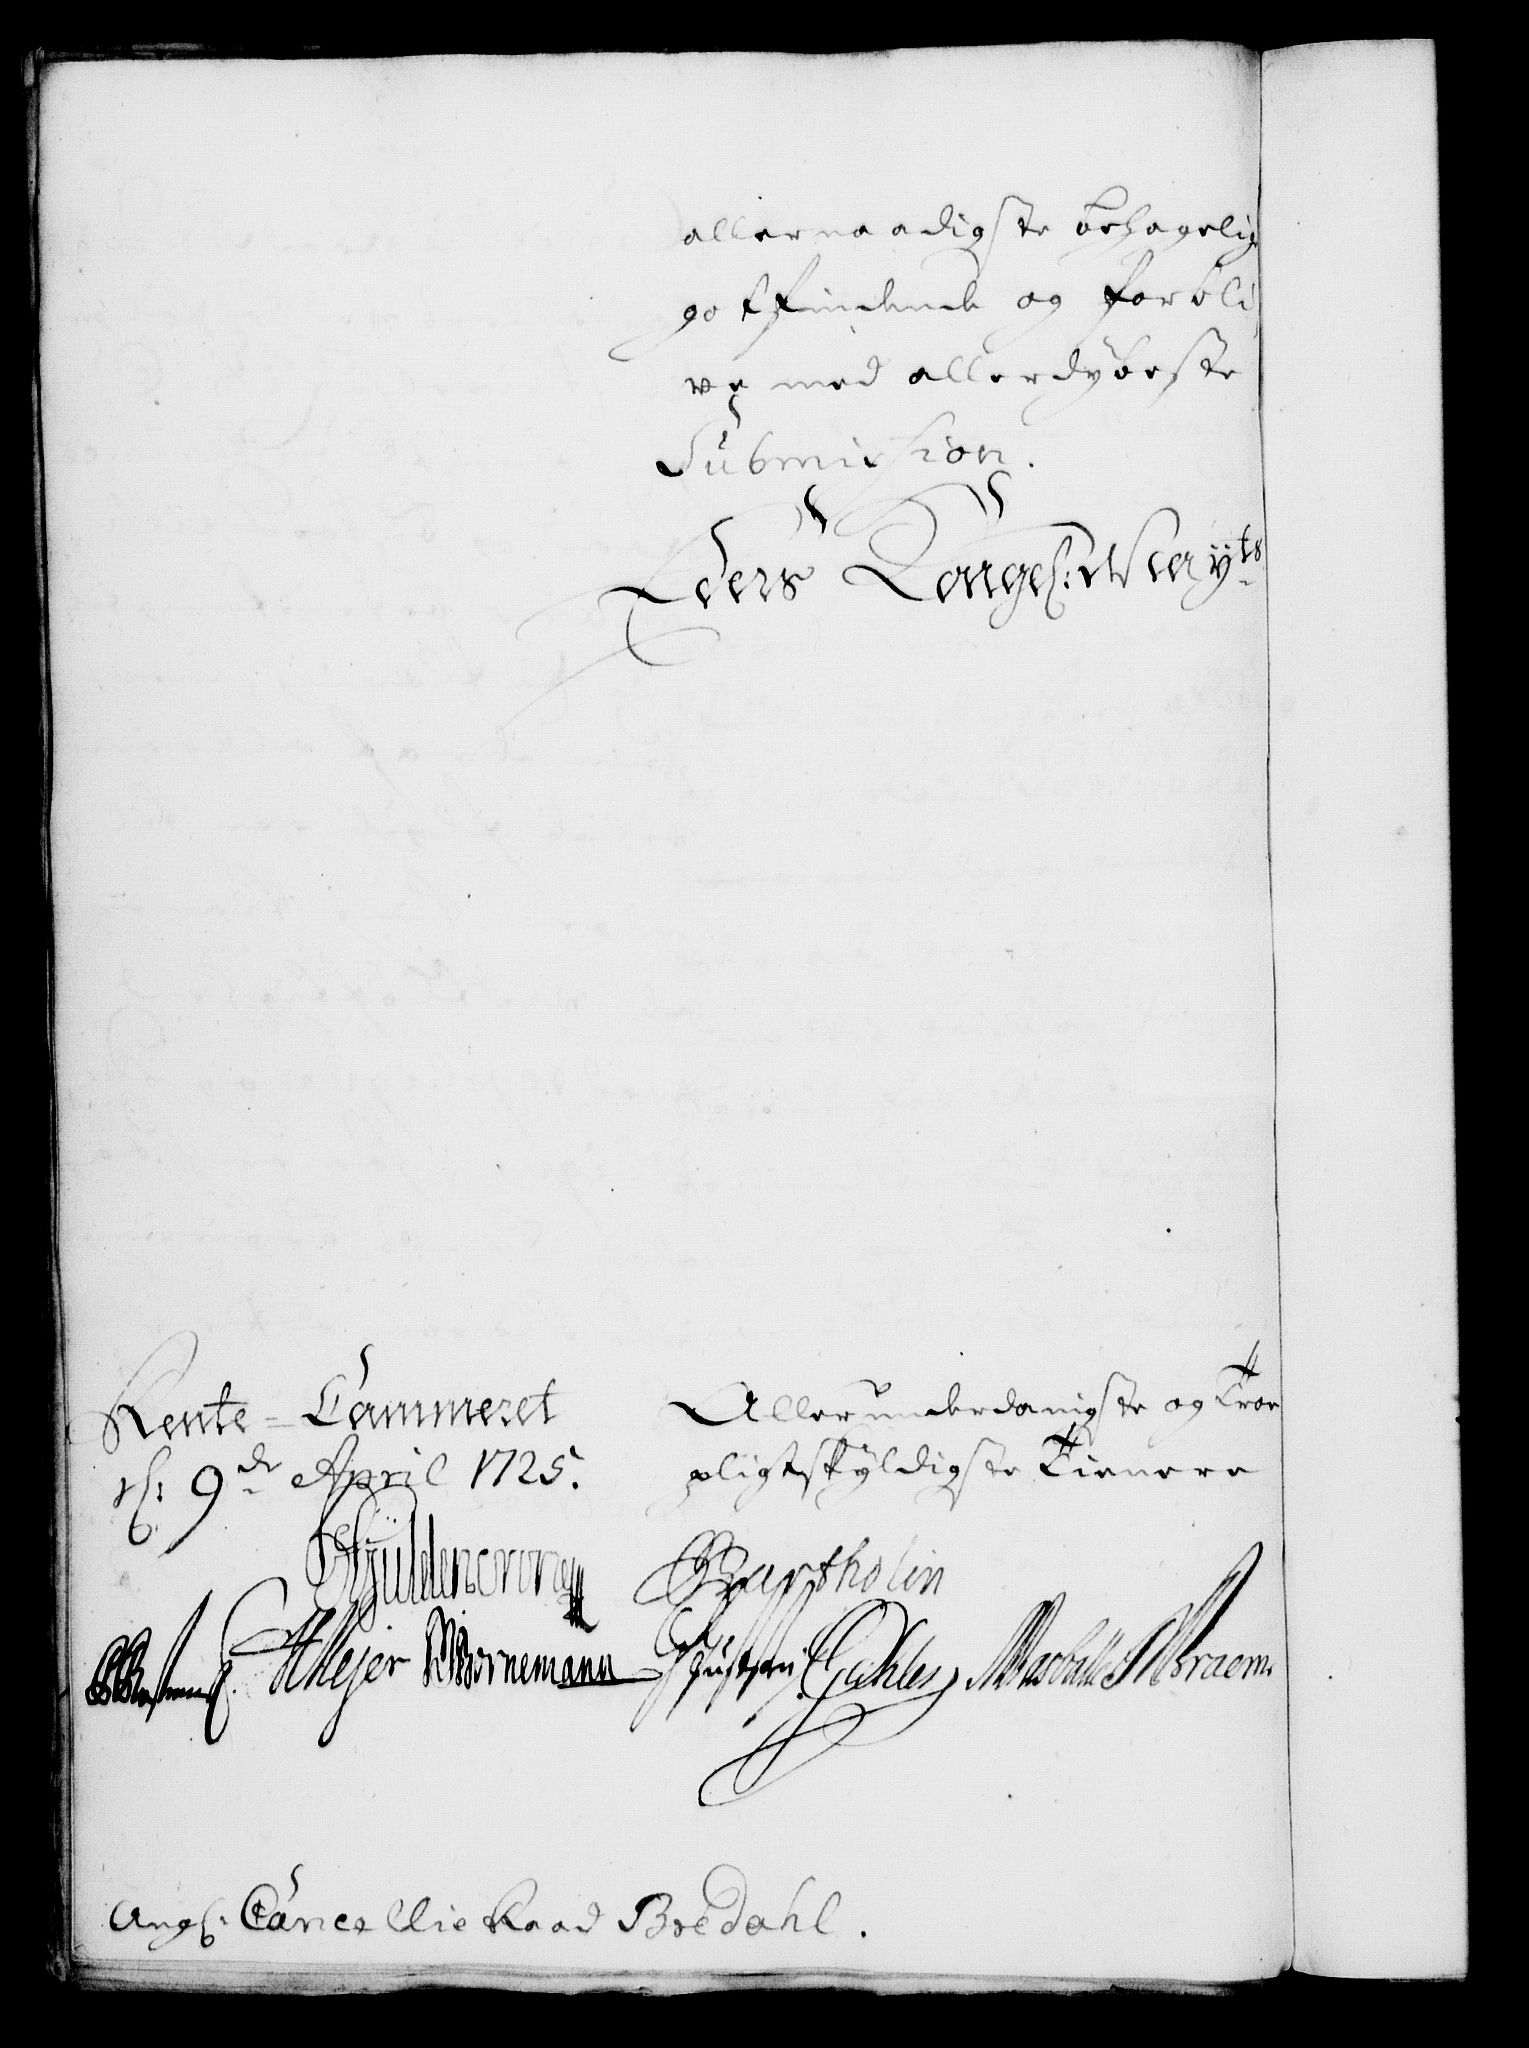 allernaadigste behagelig
gotfindende og forbli
ve med allerdybeste
Submission.
Eders Kongel: Mayts
Rente-Cammeret
d: 9de April 1725.
Allerunderdanigste og Troe
pligtskyldigste Tienere
Gyldencrone
Bartholin
HMejer Wornemann
Ang: Cancellie Raad Bredahl.